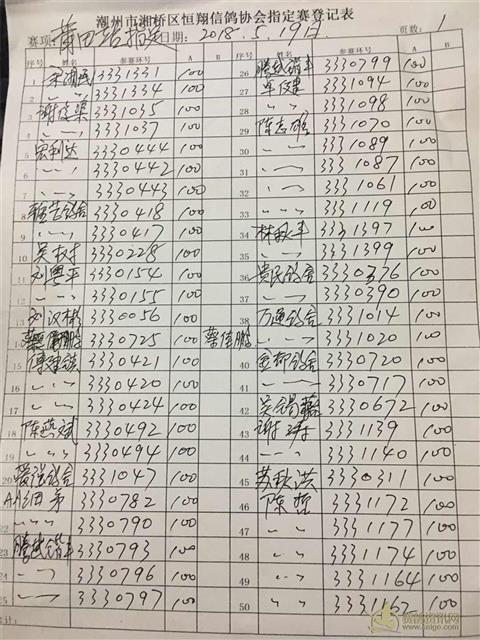 潮州市湘桥区恒翔信鸽协会指定赛登记表
赛项:莆田站指定 日期:2018.5.19日 页数:1
序号 姓名 参赛环号 A B 序号 姓名 参赛环号 A B
1 3331331 100 26 3330799 100
2 〃 3331334 100 27 3331094 100
3 3331035 100 28 〃 3331098 100
4 〃 3331037 100 29 陈志雄 3331070 100
5 宏利达 3330444 100 30 〃 3331089 100
6 〃 3330442 100 31 〃 3331087 100
7 〃 3330443 100 32 〃 3331061 100
8 3330418 100 33 〃 3331119 100
9 〃 3330417 100 34 林秋丰 3331397 100
10 3330228 100 35 〃 3331399 100
11 刘粤平 3330154 100 36 3330376 100
12 〃 3330155 100 37 〃 3330390 100
13 刘汉彬 3330056 100 38 万逸鸽舍 3331014 100
14 3330725 100 蔡佳鹏 39 〃 3331020 100
15 3330421 100 40 3330720 100
16 〃 3330420 100 41 〃 3330717 100
17 〃 3330424 100 42 3330672 100
18 陈燕斌 3330492 100 43 谢涛 3331139 100
19 〃 3330494 100 44 〃 3331140 100
20 爱强鸽舍 3331047 100 45 苏秋洪 3330311 100
3330782 100 46 陈哲 3331172 100
22 〃 3330790 100 47 〃 3331177 100
23 3330793 100 48 〃 3331174 100
24 〃 3330796 100 49 〃 3331164 100
25 〃 3330797 100 50 〃 3331162 100